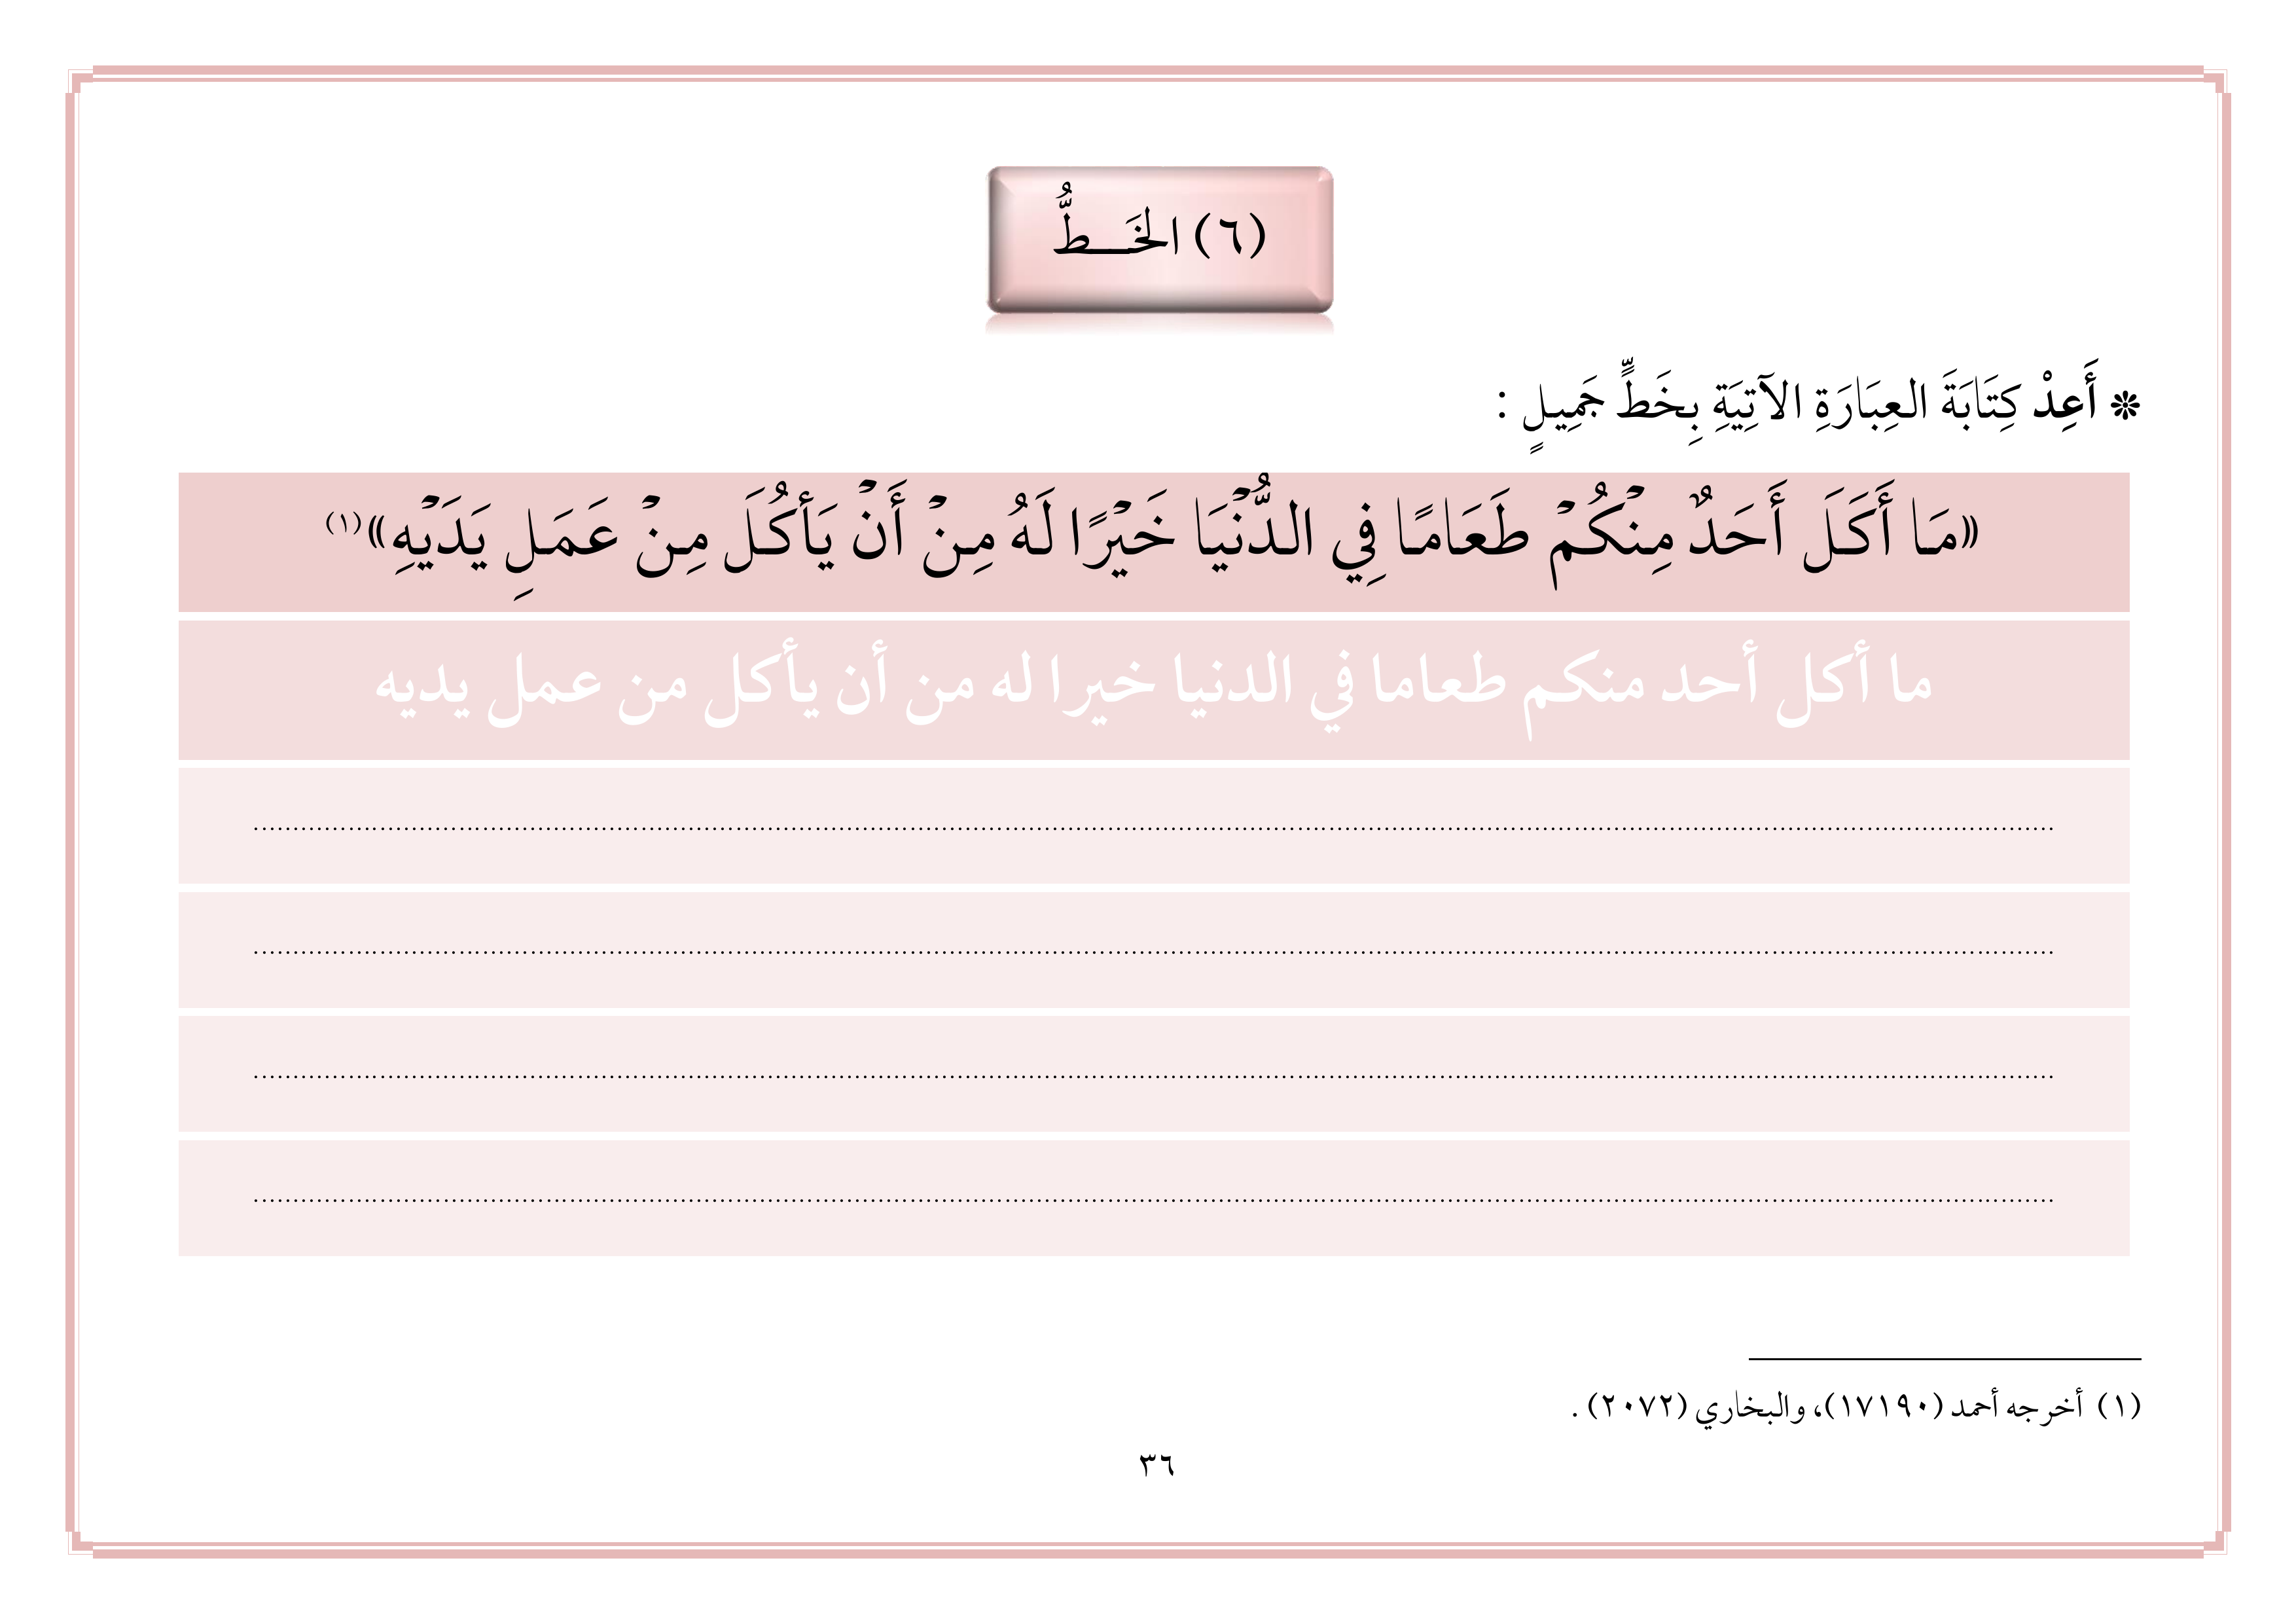 (٦) الخَـــطُّ
❊ أَعِدْ كِتَابَةَ العِبَارَةِ الآتِيَةِ بِخَطٍّ جَمِيلٍ :
«مَا أَكَلَ أَحَدٌ مِنْكُمْ طَعَامًا فِي الدُّنْيَا خَيْرًا لَهُ مِنْ أَنْ يَأْكُلَ مِنْ عَمَلِ يَدَيْهِ»(١)
ما أكل أحد منكم طعاما في الدنيا خيرا له من أن يأكل من عمل يديه
(١) أخرجه أحمد (١٧١٩٠)، والبخاري (٢٠٧٢) .
٣٦